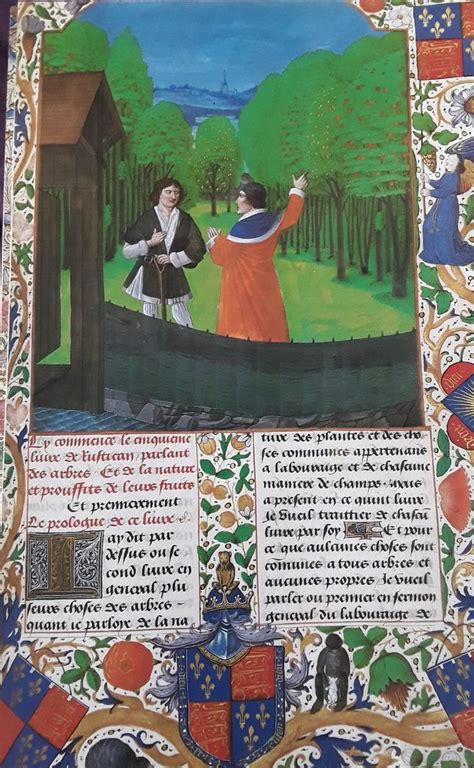 Cy commence le cinquieme
livre de Rustican, parlant
des arbres. Et de la nature
et prouffits de leurs fruits
Et premierement
Le prologue de ce livre
Iay dit par
dessus ou se
cond livre en
general plu
seurs choses des arbres
quant ie parloye de la na
ture des plantes et des cho
ses communes appertenans
a labourage et de chascune
maniere de champs. mais
a present en ce quint livre
Je vueil traittier de chascun
livre par soy Et pour
ce que aulcunes choses sont
communes a tous arbres et
aucunes propres Je vueil
parler ou premier en sermon
general du labourage de